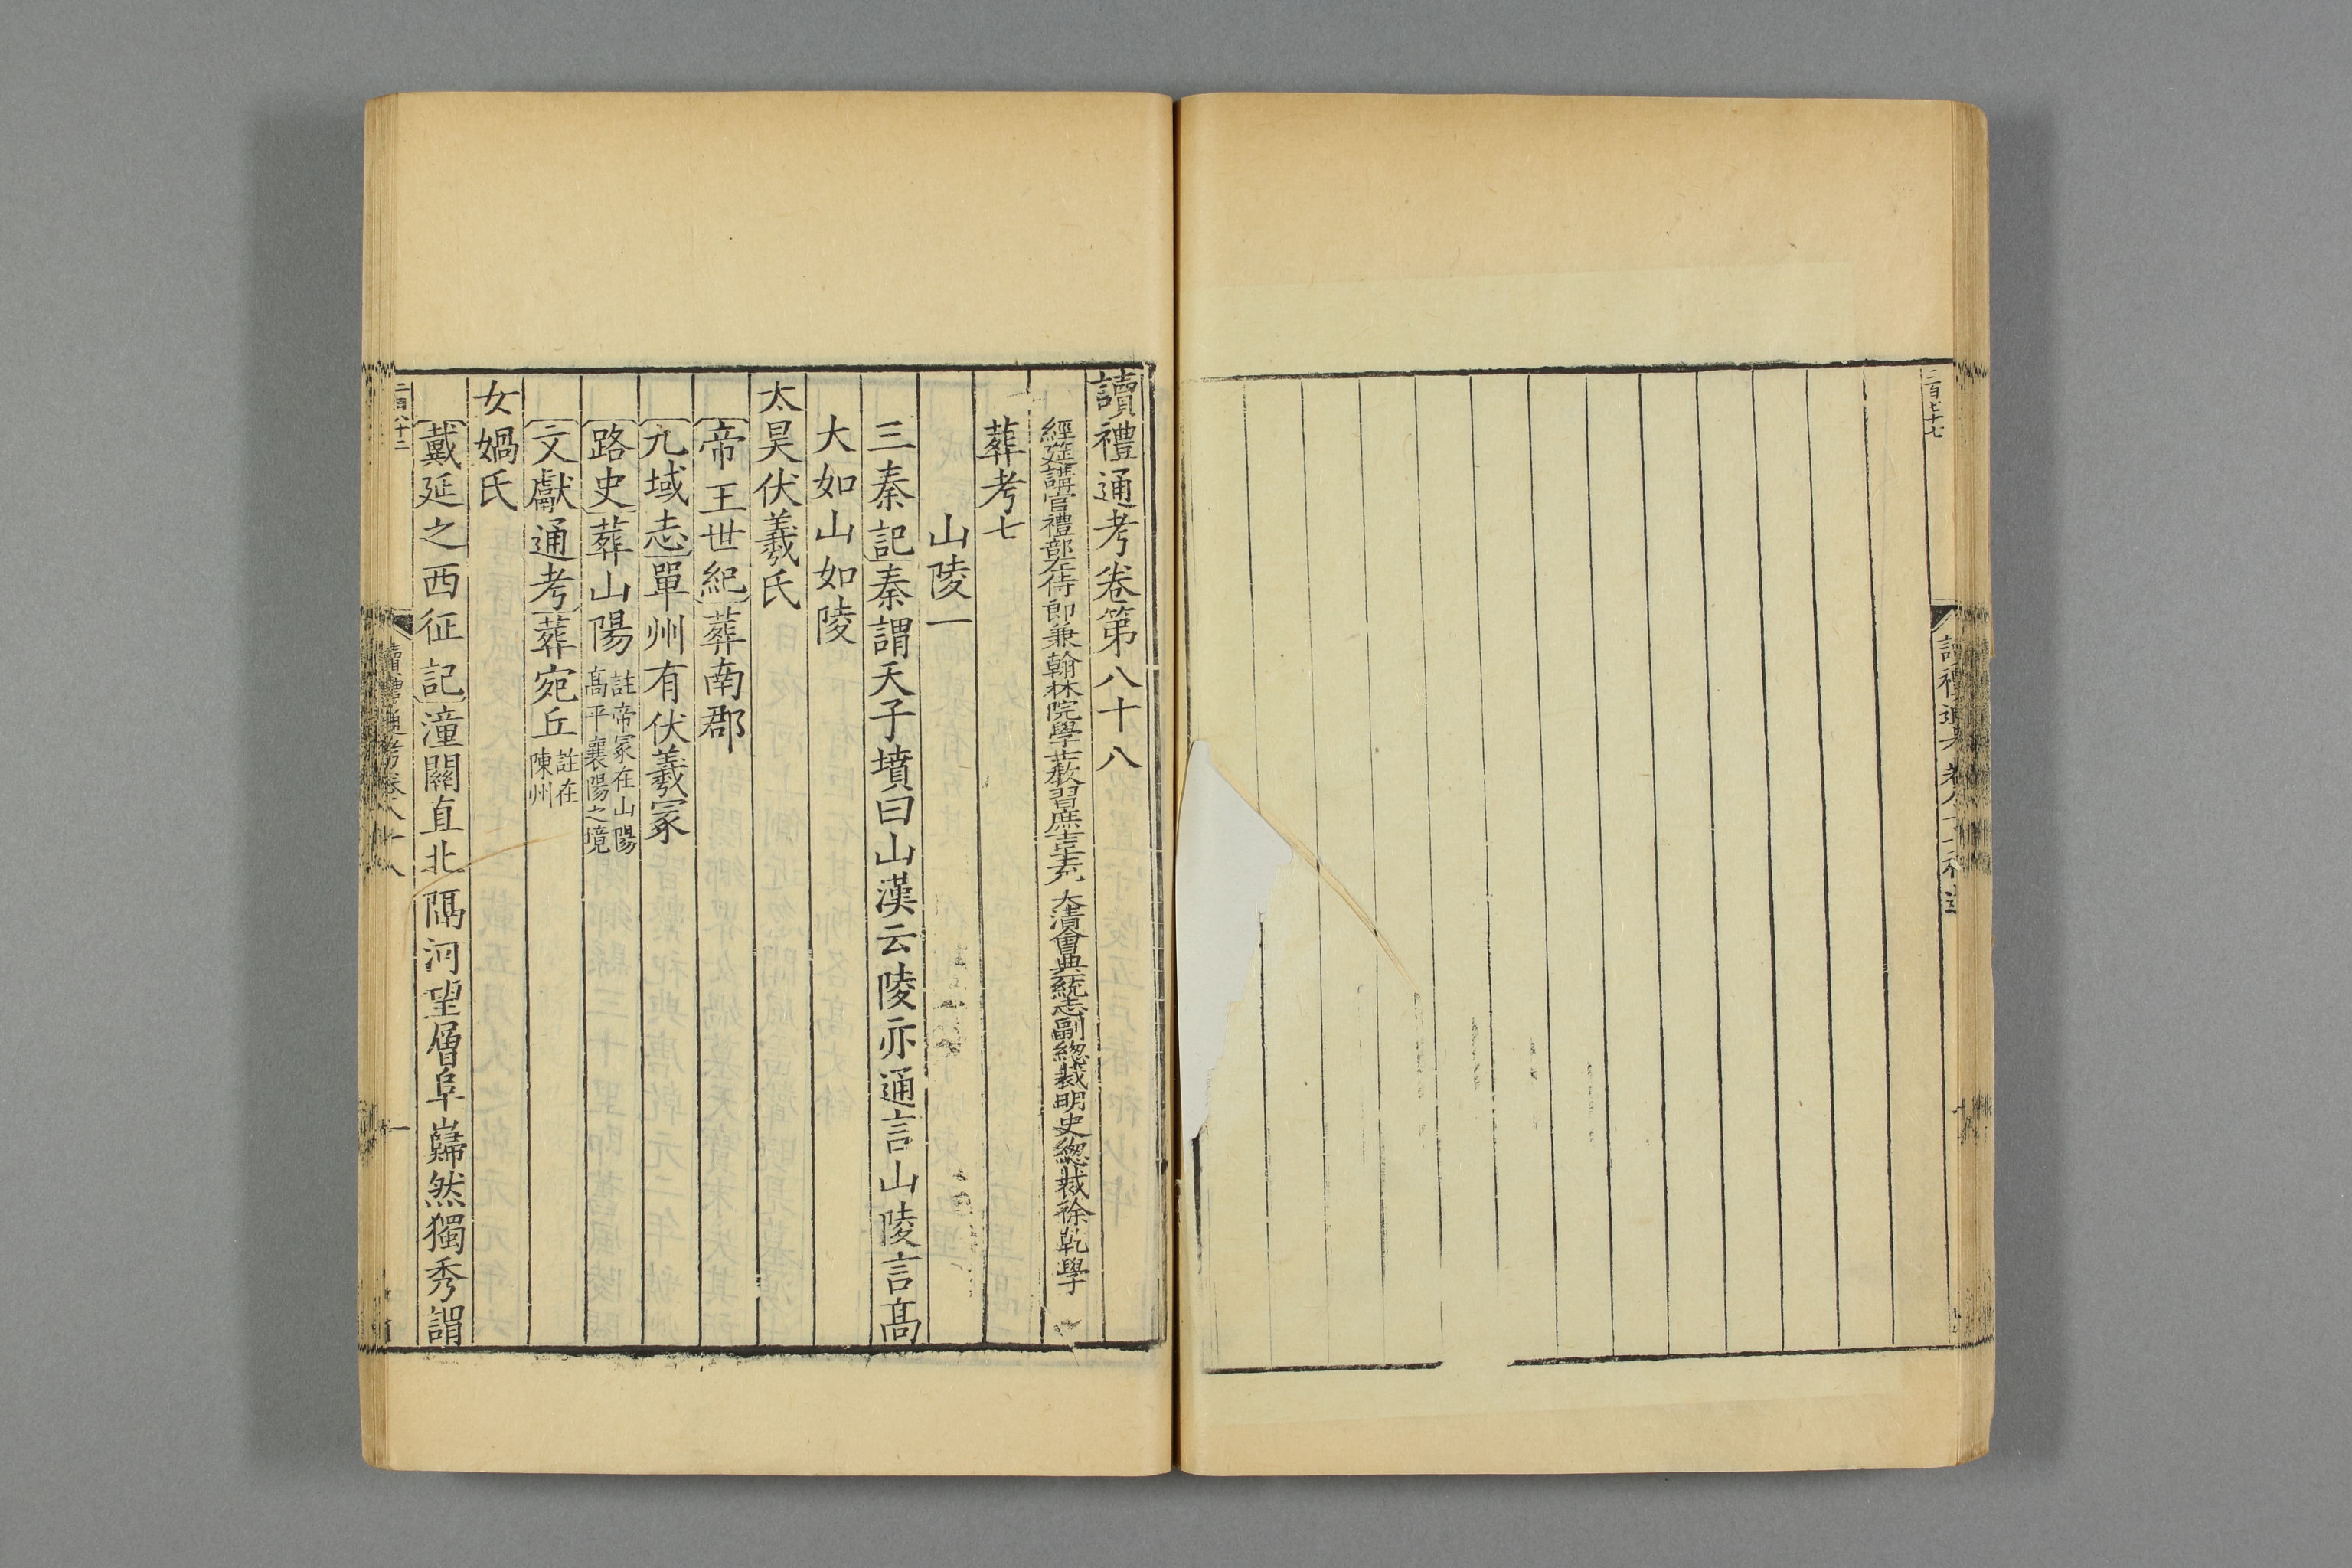 三百七十七
讀禮通考卷第八十八
經筵講官禮部左侍郎兼翰林院學士教習庶吉士充　大清會典統志副總裁明史總裁徐乾學
葬考七
山陵一
三秦記秦謂天子墳曰山漢云陵亦通言山陵言高
大如山如陵
太昊伏羲氏
帝王世紀葬南郡
九域志單州有伏羲冢
路史葬山陽註帝冢在山陽
高平襄陽之境
文獻通考葬宛丘註在
陳州
女媧氏
戴延之西征記潼關直北隔河望層阜巋然獨秀謂
讀禮通考卷八十八
一